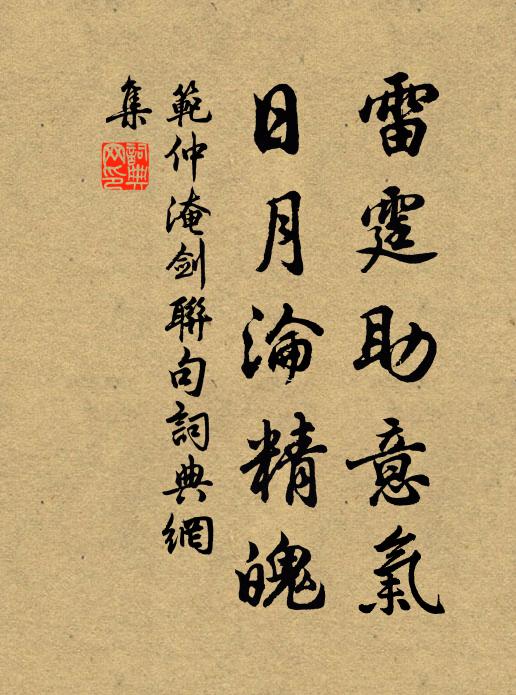 雷霆助意氣
日月淪精魄
範仲淹劍聯句詞典網
集
詞典
网印